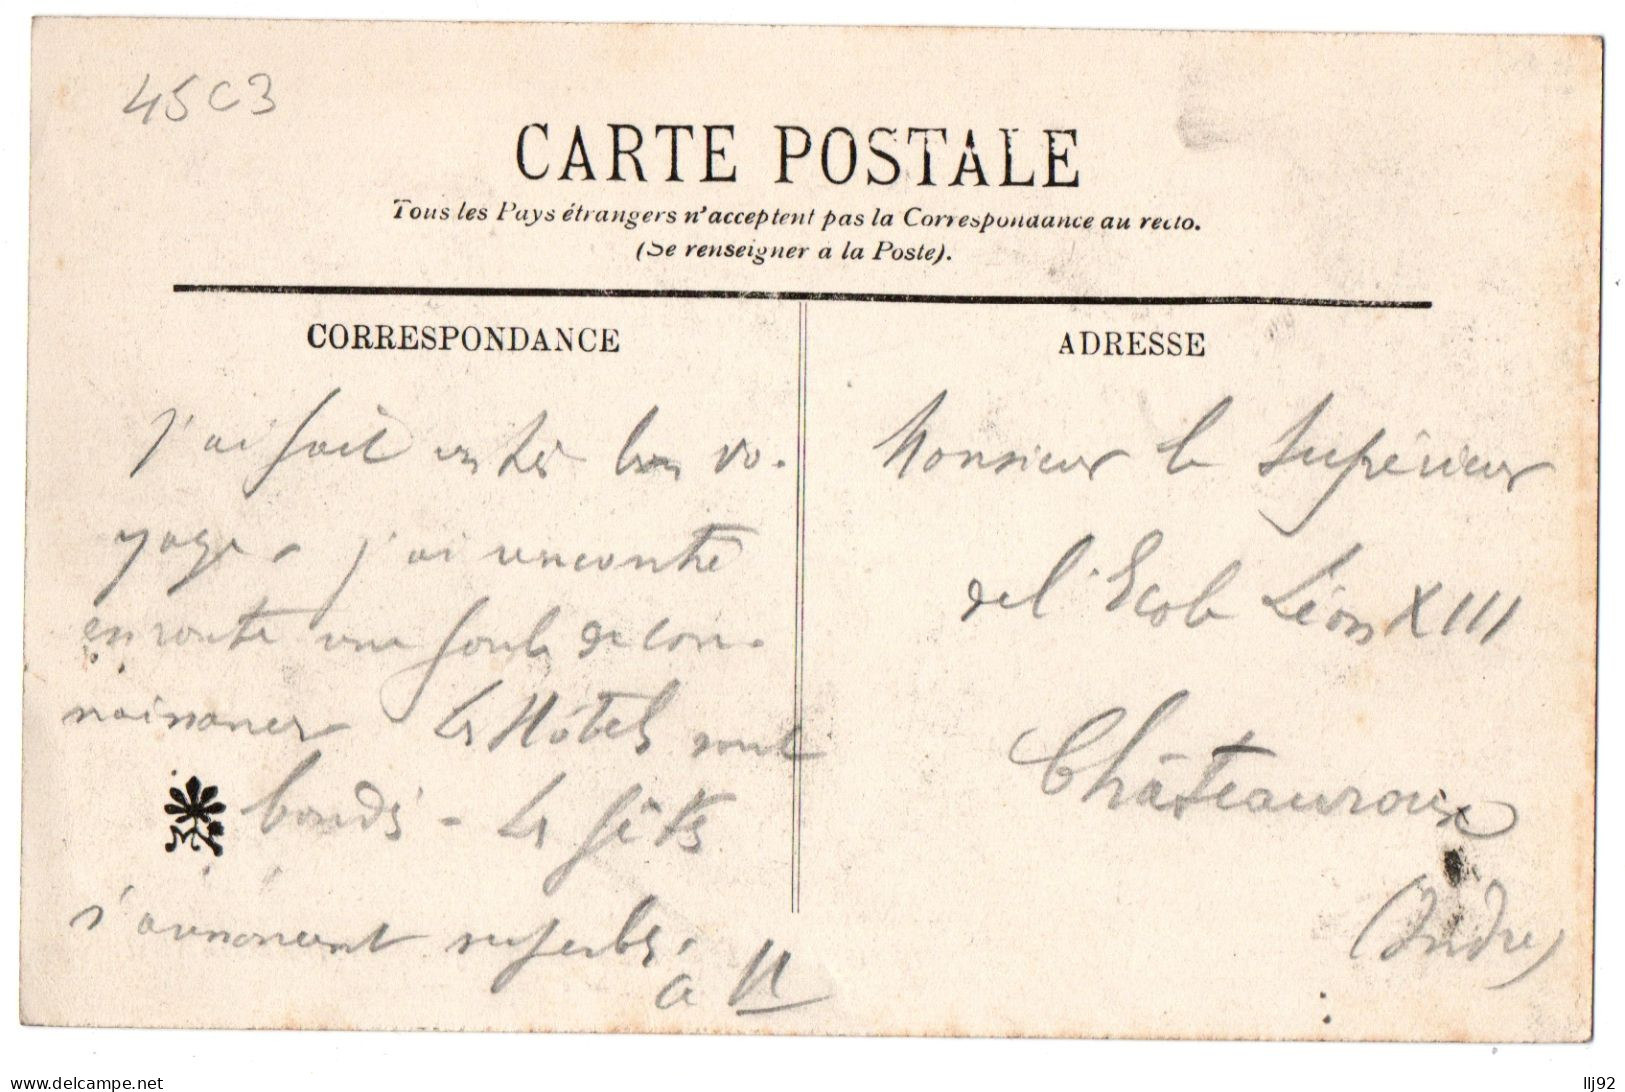 45C3
CARTE POSTALE
Tous les Pays étrangers n'acceptent pas la Correspondance au recto.
(Se renseigner à la Poste).
CORRESPONDANCE
J'ai fait un très bon vo-
yage. j'ai rencontré
en route une foule de con-
naissances Les Hôtels sont
bondés - Les fêtes
s'annoncent superbes.
ADRESSE
Monsieur le Supérieur
de l'Ecole Léon XIII
Châteauroux
(Indre)
delcampe.net
llj92